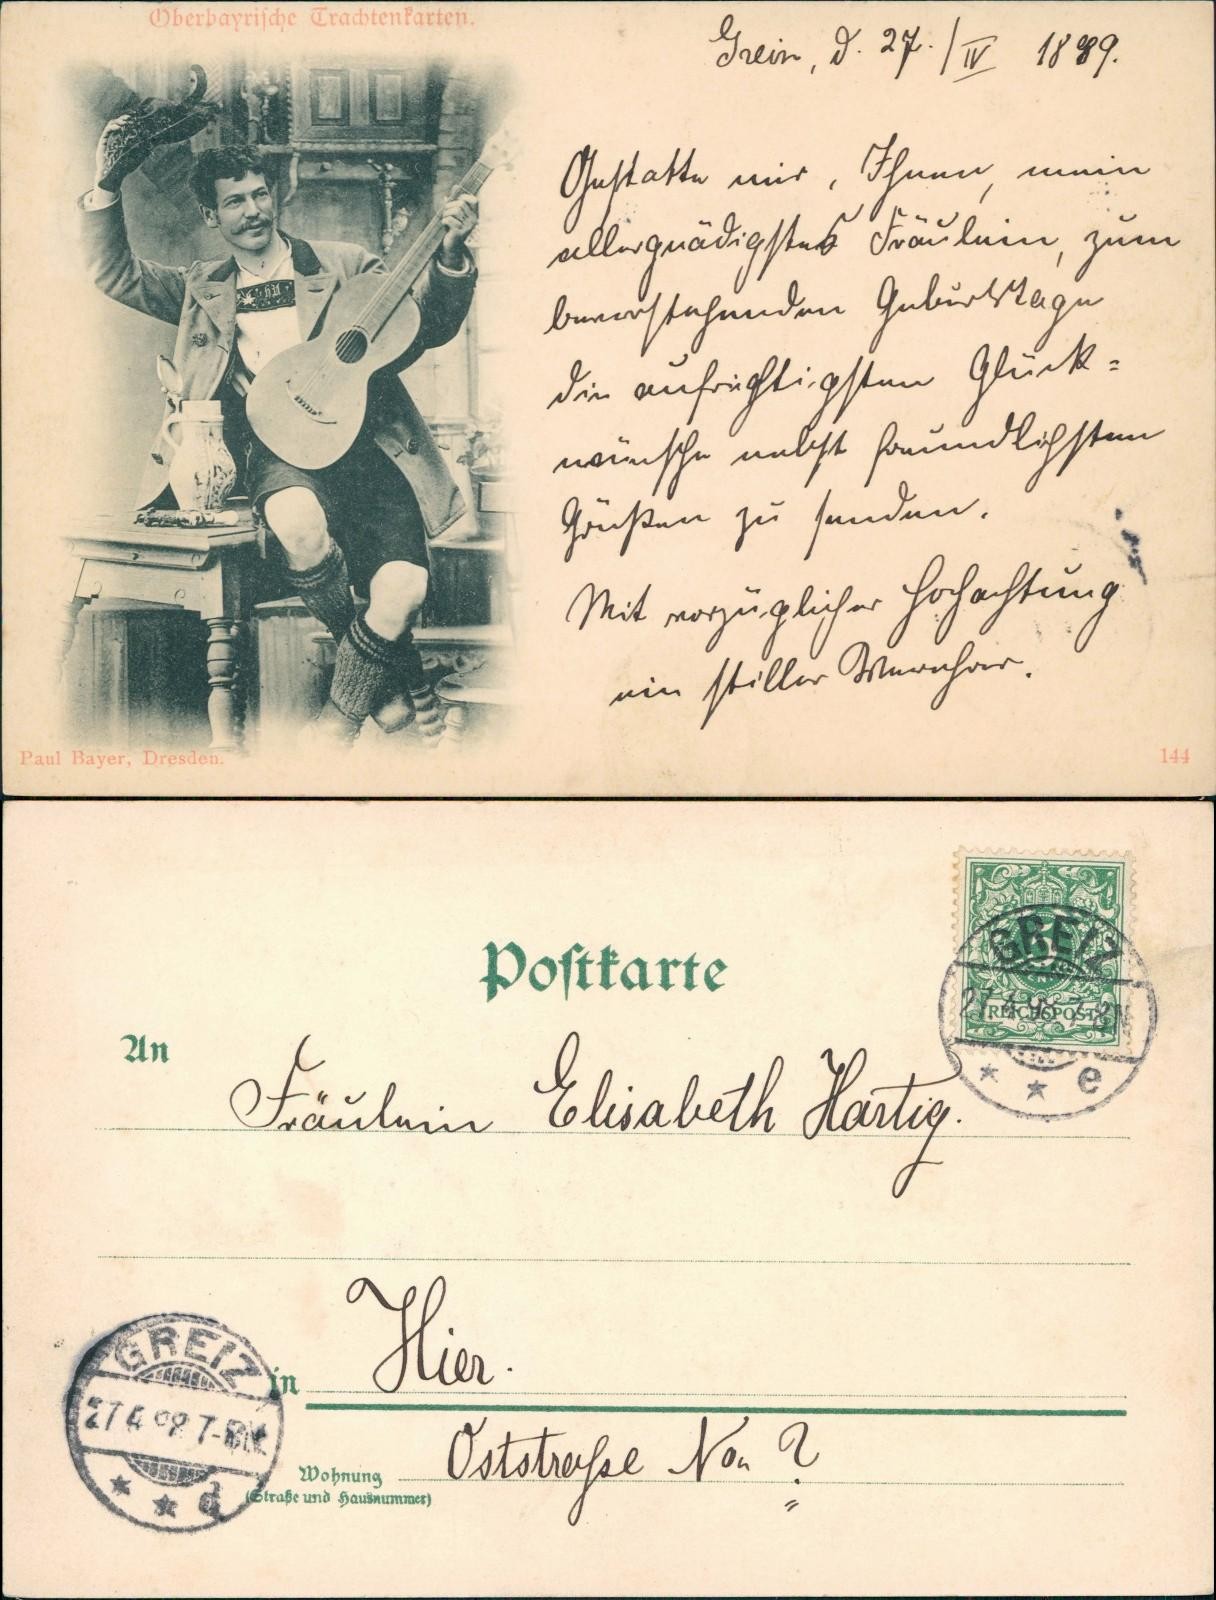 Oberbayrische Trachtenkarten.
Greiz, d. 27./IV 1889.
Gestatte mir, Ihnen, mein
allergnädigstes Fräulein, zum
bevorstehenden Geburtstage
die aufrichtigsten Glück-
wünsche nebst freundlichsten
Grüßen zu senden.
Mit vorzüglicher Hochachtung
ein stiller Verehrer.
Paul Bayer, Dresden.
144
Postkarte
GREIZ
27.4.98.7-8N
REICHSPOST
e
An
Fräulein Elisabeth Hartig.
in Hier.
GREIZ
27.4.98.7-8N.
d
Oststraße No. ?
Wohnung
(Straße und Hausnummer)